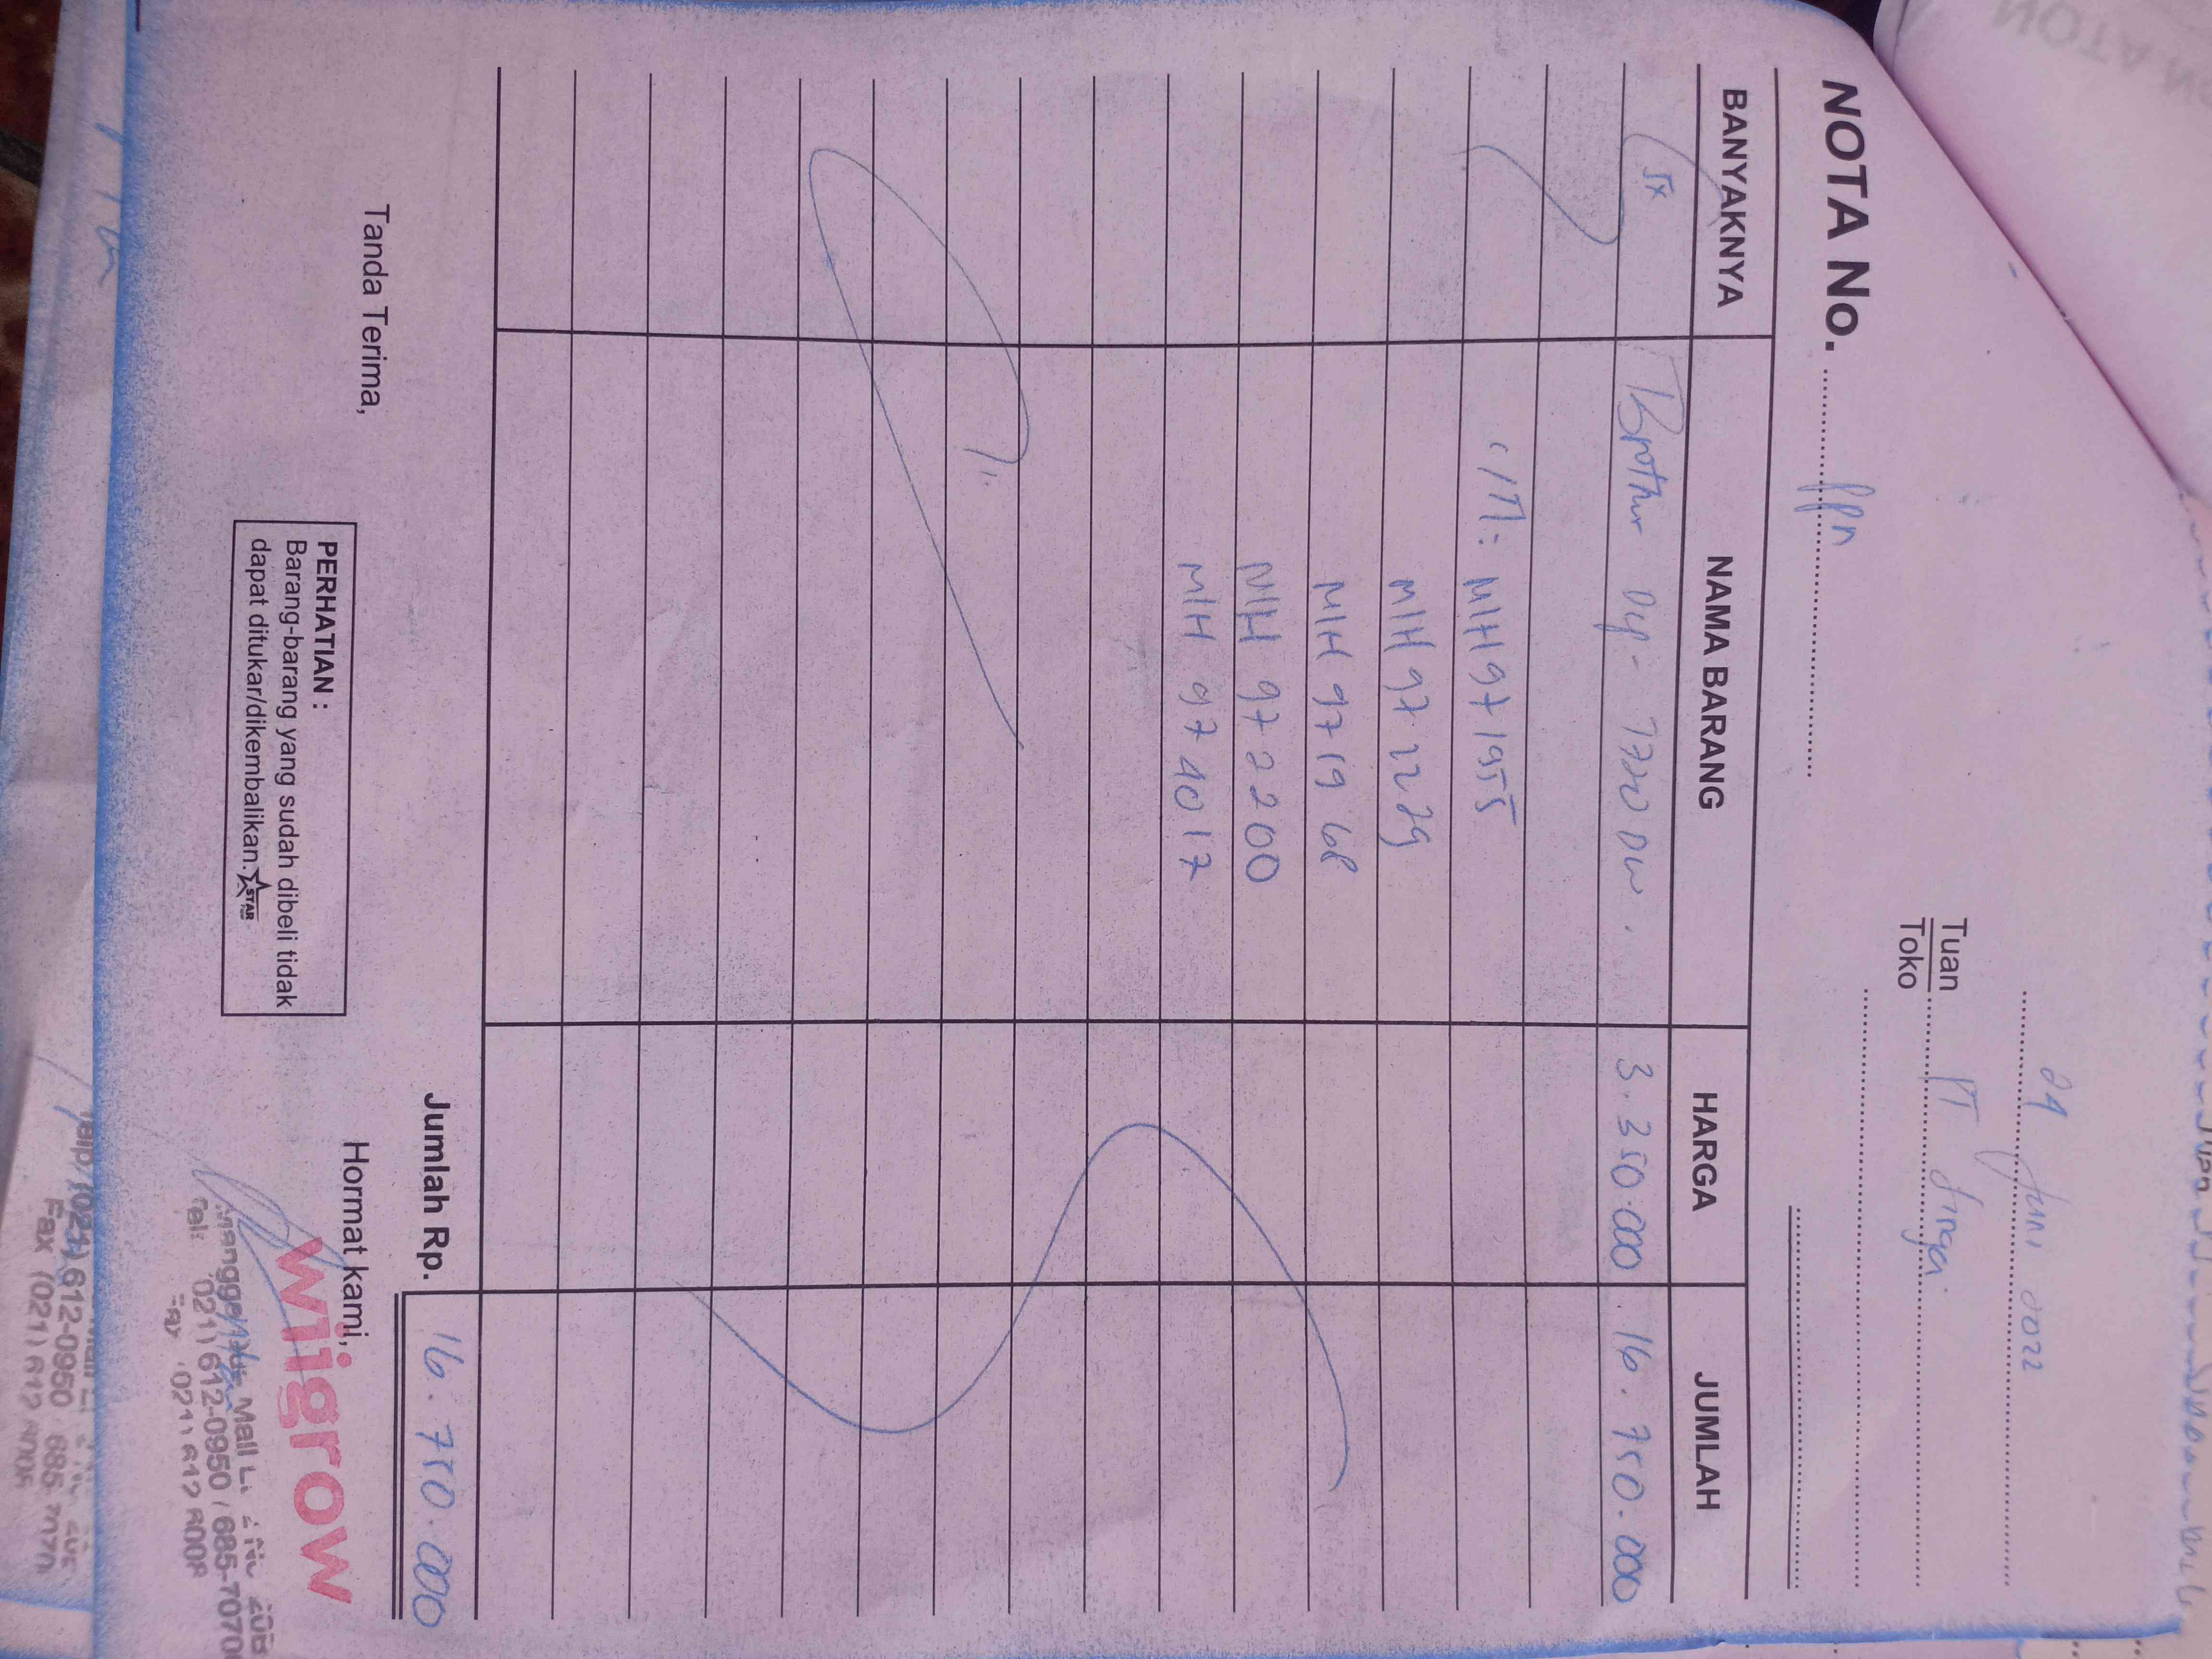 24 Juni 2022
Tuan PT
Toko
NOTA No. PPn
BANYAKNYA NAMA BARANG HARGA JUMLAH
5x Brother Dcp - 7720 DW. 3.350.000 16.750.000
MIH 971955
MIH 972229
MIH 971968
MIH 972200
MIH 974017
Jumlah Rp. 16.750.000
Tanda Terima, Hormat kami,
PERHATIAN :
Barang-barang yang sudah dibeli tidak
dapat ditukar/dikembalikan. STAR
Wiigrow
Mall
021) 612-0950 / 685-7070
612-0950 685
Fax (021)